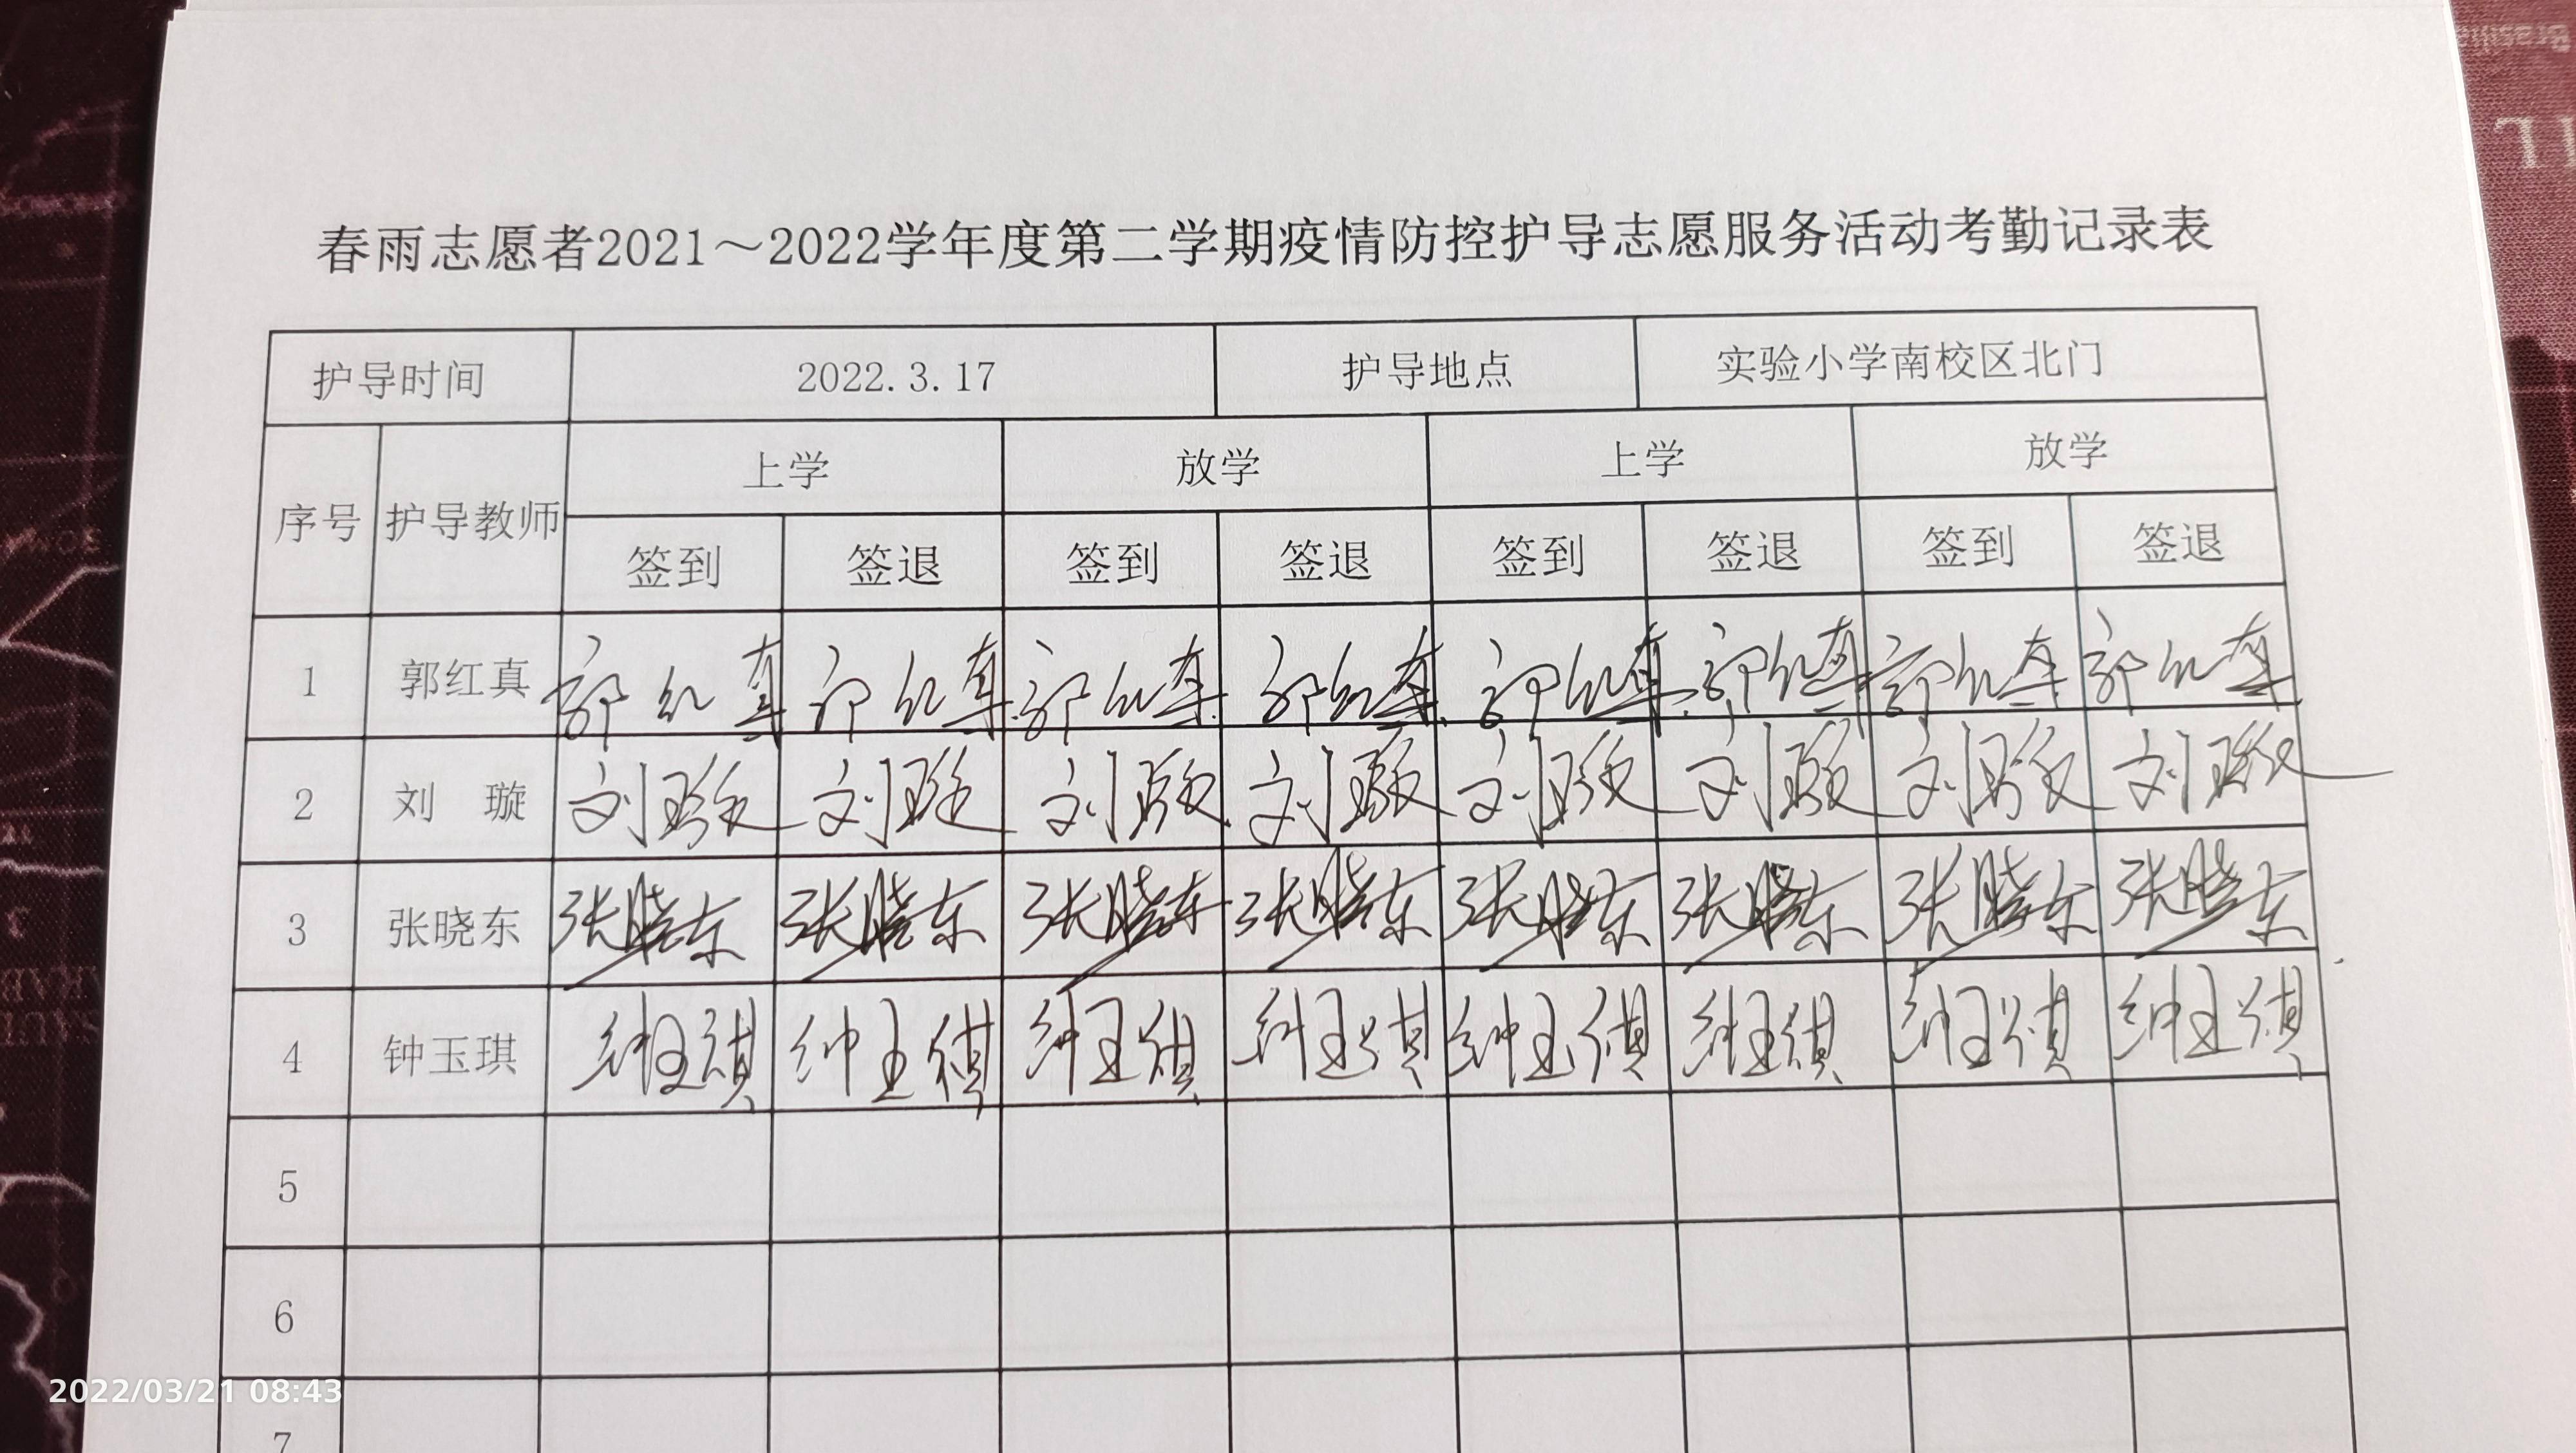 春雨志愿者2021～2022学年度第二学期疫情防控护导志愿服务活动考勤记录表
护导时间 2022.3.17 护导地点 实验小学南校区北门
序号 护导教师 上学 放学 上学 放学
签到 签退 签到 签退 签到 签退 签到 签退
1 郭红真 郭红真 郭红真 郭红真 郭红真 郭红真 郭红真 郭红真 郭红真
2 刘 璇 刘璇 刘璇 刘璇 刘璇 刘璇 刘璇 刘璇 刘璇
3 张晓东 张晓东 张晓东 张晓东 张晓东 张晓东 张晓东 张晓东 张晓东
4 钟玉琪 钟玉琪 钟玉琪 钟玉琪 钟玉琪 钟玉琪 钟玉琪 钟玉琪 钟玉琪
5
6
7
2022/03/21 08:43